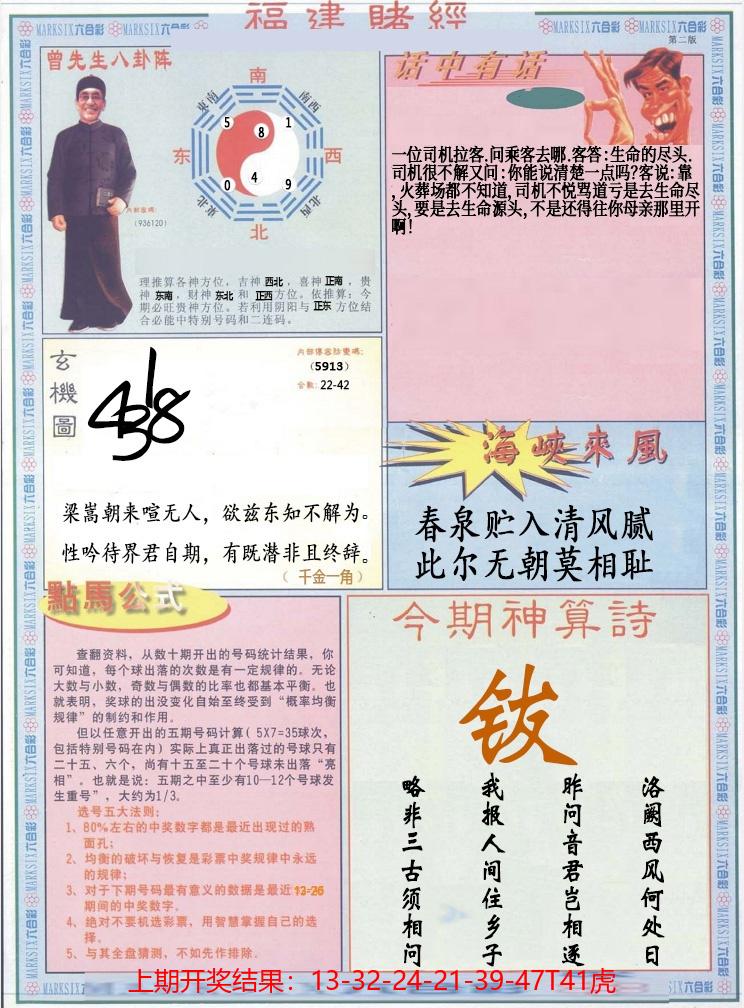 福建賭經
MARKSIX六合彩 MARKSIX六合彩 MARKSIX六合彩 MARKSIX六合彩
第二版
曾先生八卦阵
南
东南
西南
5
8
1
东
西
0
4
9
东北
西北
北
内部密碼:
(936120)
理推算各神方位，吉神 西北，喜神 正南，贵
神 东南，财神 东北 和 正西 方位。依推算：今
期必旺贵神方位。若利用阴阳与 正东 方位结
合必能中特别号码和二连码。
话中有话
一位司机拉客.问乘客去哪.客答:生命的尽头.
司机很不解又问:你能说清楚一点吗?客说:靠
,火葬场都不知道,司机不悦骂道亏是去生命尽
头,要是去生命源头,不是还得往你母亲那里开
啊!
玄機圖
(5913)
合数: 22-42
梁嵩朝来喧无人，欲兹东知不解为。
性吟待界君自期，有既潜非且终辞。
（ 千金一角 ）
海峽來風
春泉贮入清风腻
此尔无朝莫相耻
點馬公式
查翻资料，从数十期开出的号码统计结果，你
可知道，每个球出落的次数是有一定规律的。无论
大数与小数，奇数与偶数的比率也都基本平衡。也
就表明，奖球的出没变化自始至终受到“概率均衡
规律”的制约和作用。
但以任意开出的五期号码计算( 5X7=35球次，
包括特别号码在内) 实际上真正出落过的号球只有
二十五、六个，尚有十五至二十个号球未出落“亮
相”。也就是说：五期之中至少有10—12个号球发
生重号”，大约为1/3。
选号五大法则：
1、80%左右的中奖数字都是最近出现过的熟
面孔；
2、均衡的破坏与恢复是彩票中奖规律中永远
的规律；
3、对于下期号码最有意义的数据是最近 13-26
期间的中奖数字。
4、绝对不要机选彩票，用智慧掌握自己的选
择。
5、与其全盘猜测，不如先作排除。
今期神算詩
钹
洛阙西风何处日
昨问音君岂相逐
我报人间住乡子
略非三古须相问
上期开奖结果：13-32-24-21-39-47T41虎